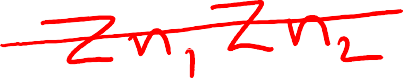 Zn₁ Zn₂